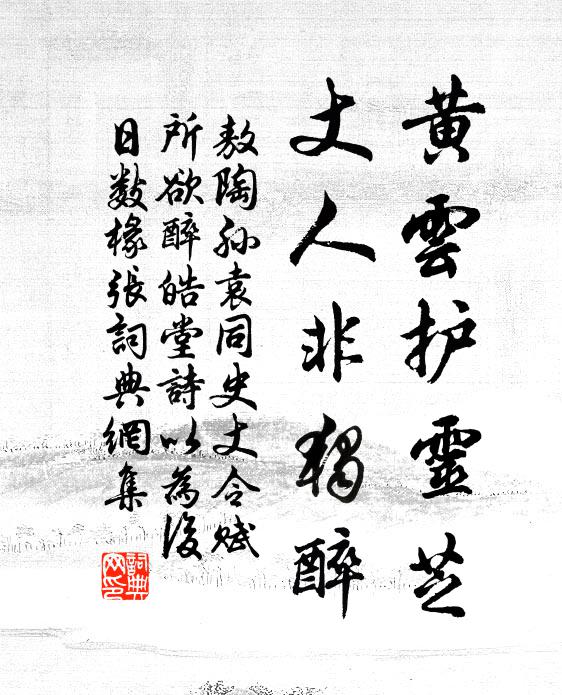 黄雲护靈芝
丈人非獨醉
敖陶孙袁同史丈令赋
所欲醉皓堂詩以為後
日數椽張詞典網集
詞典
网印